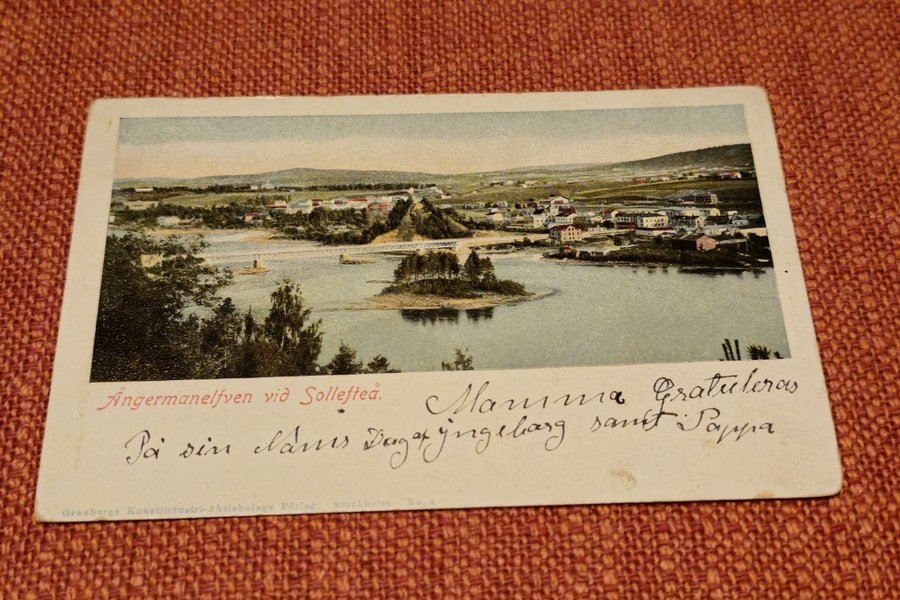 Ångermanelfven vid Sollefteå.
Mamma Gratuleras
På sin Nams Dag af Yngeborg samt Pappa
Granbergs Konstindustri-Aktiebolags Förlag. Stockholm. No. 4